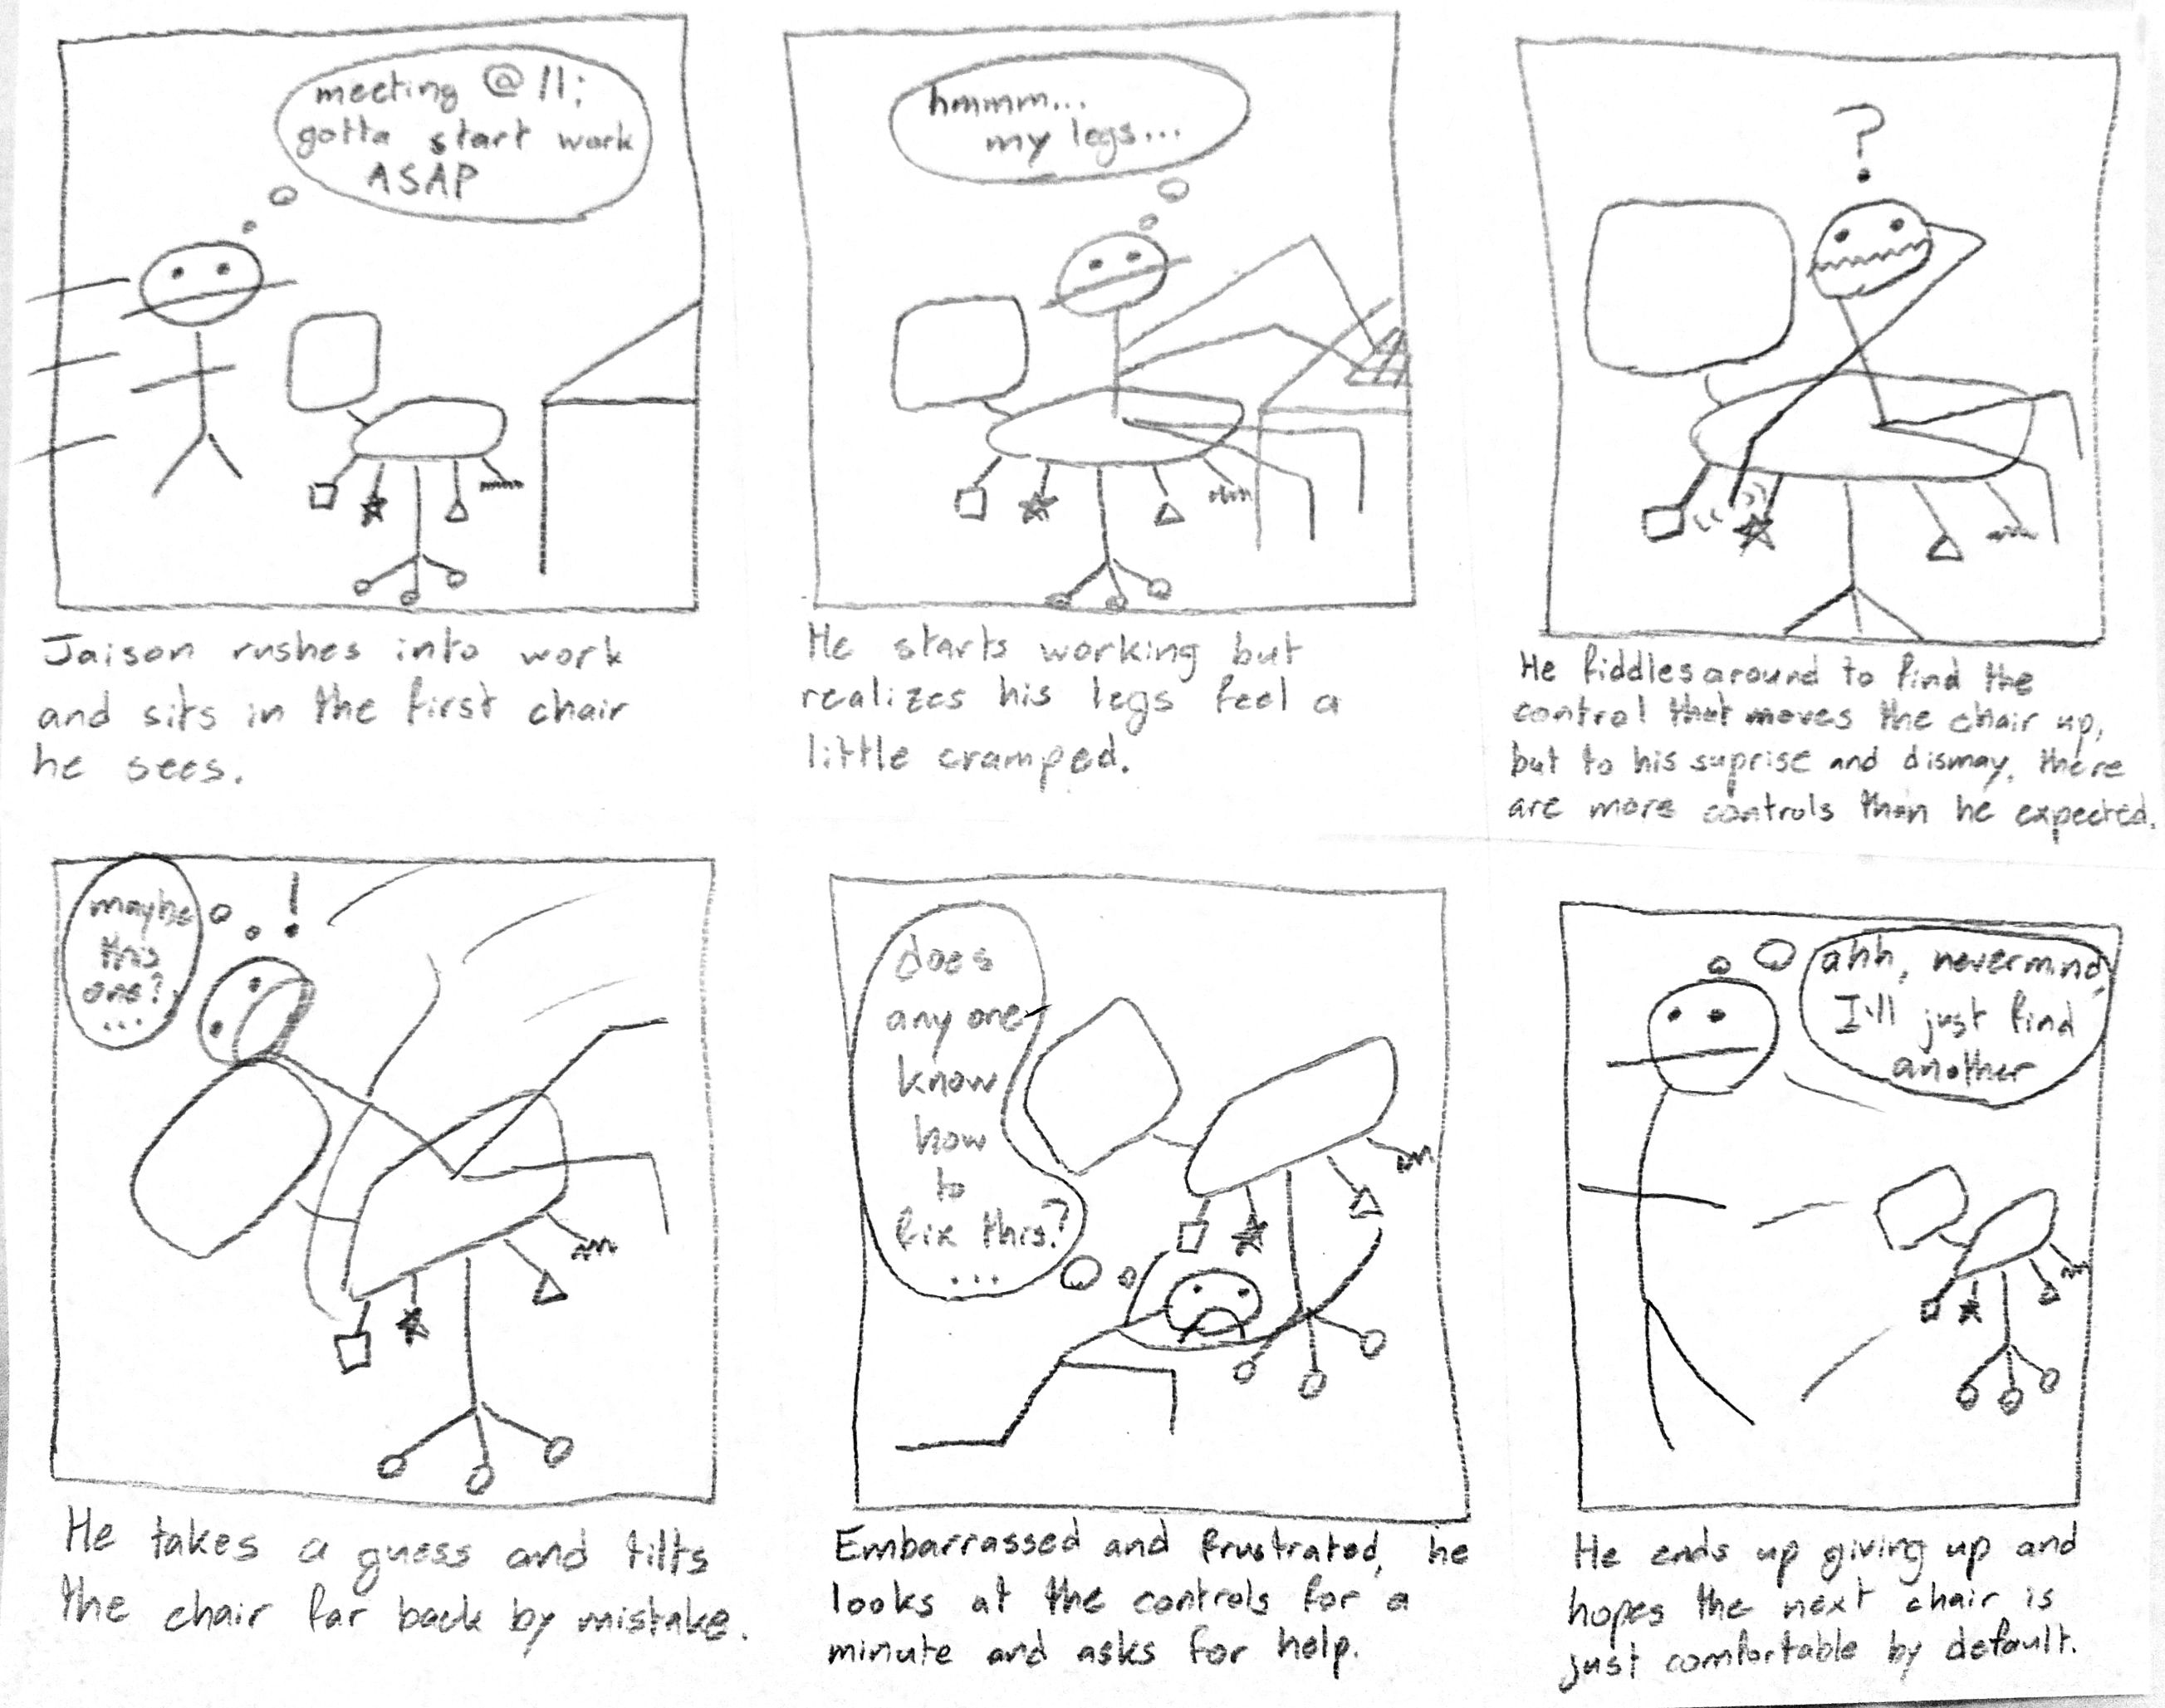 meeting @ 11;
gotta start work
ASAP
Jaison rushes into work
and sits in the first chair
he sees.
hmmm...
my legs...
He starts working but
realizes his legs feel a
little cramped.
?
He fiddles around to find the
control that moves the chair up,
but to his suprise and dismay, there
are more controls than he expected.
maybe
this
one?
...
!
He takes a guess and tilts
the chair far back by mistake.
does
anyone
know
how
to
fix this?
...
Embarrassed and frustrated, he
looks at the controls for a
minute and asks for help.
ahh, nevermind,
I'll just find
another
He ends up giving up and
hopes the next chair is
just comfortable by default.